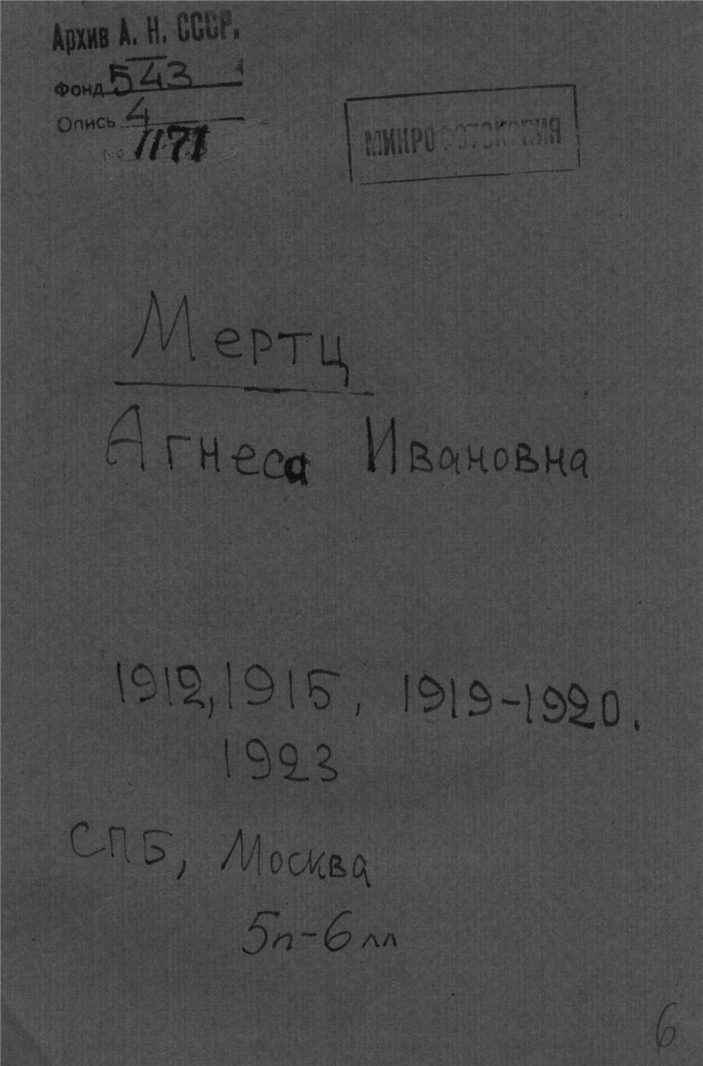 Архив А. Н. СССР.
Фонд 543
Опись 4
№ 1171
МИКРОФОТОКОПИЯ
Мертц
Агнеса Ивановна
1912, 1915, 1919-1920.
1923
СПБ, Москва
5п-6лл
6